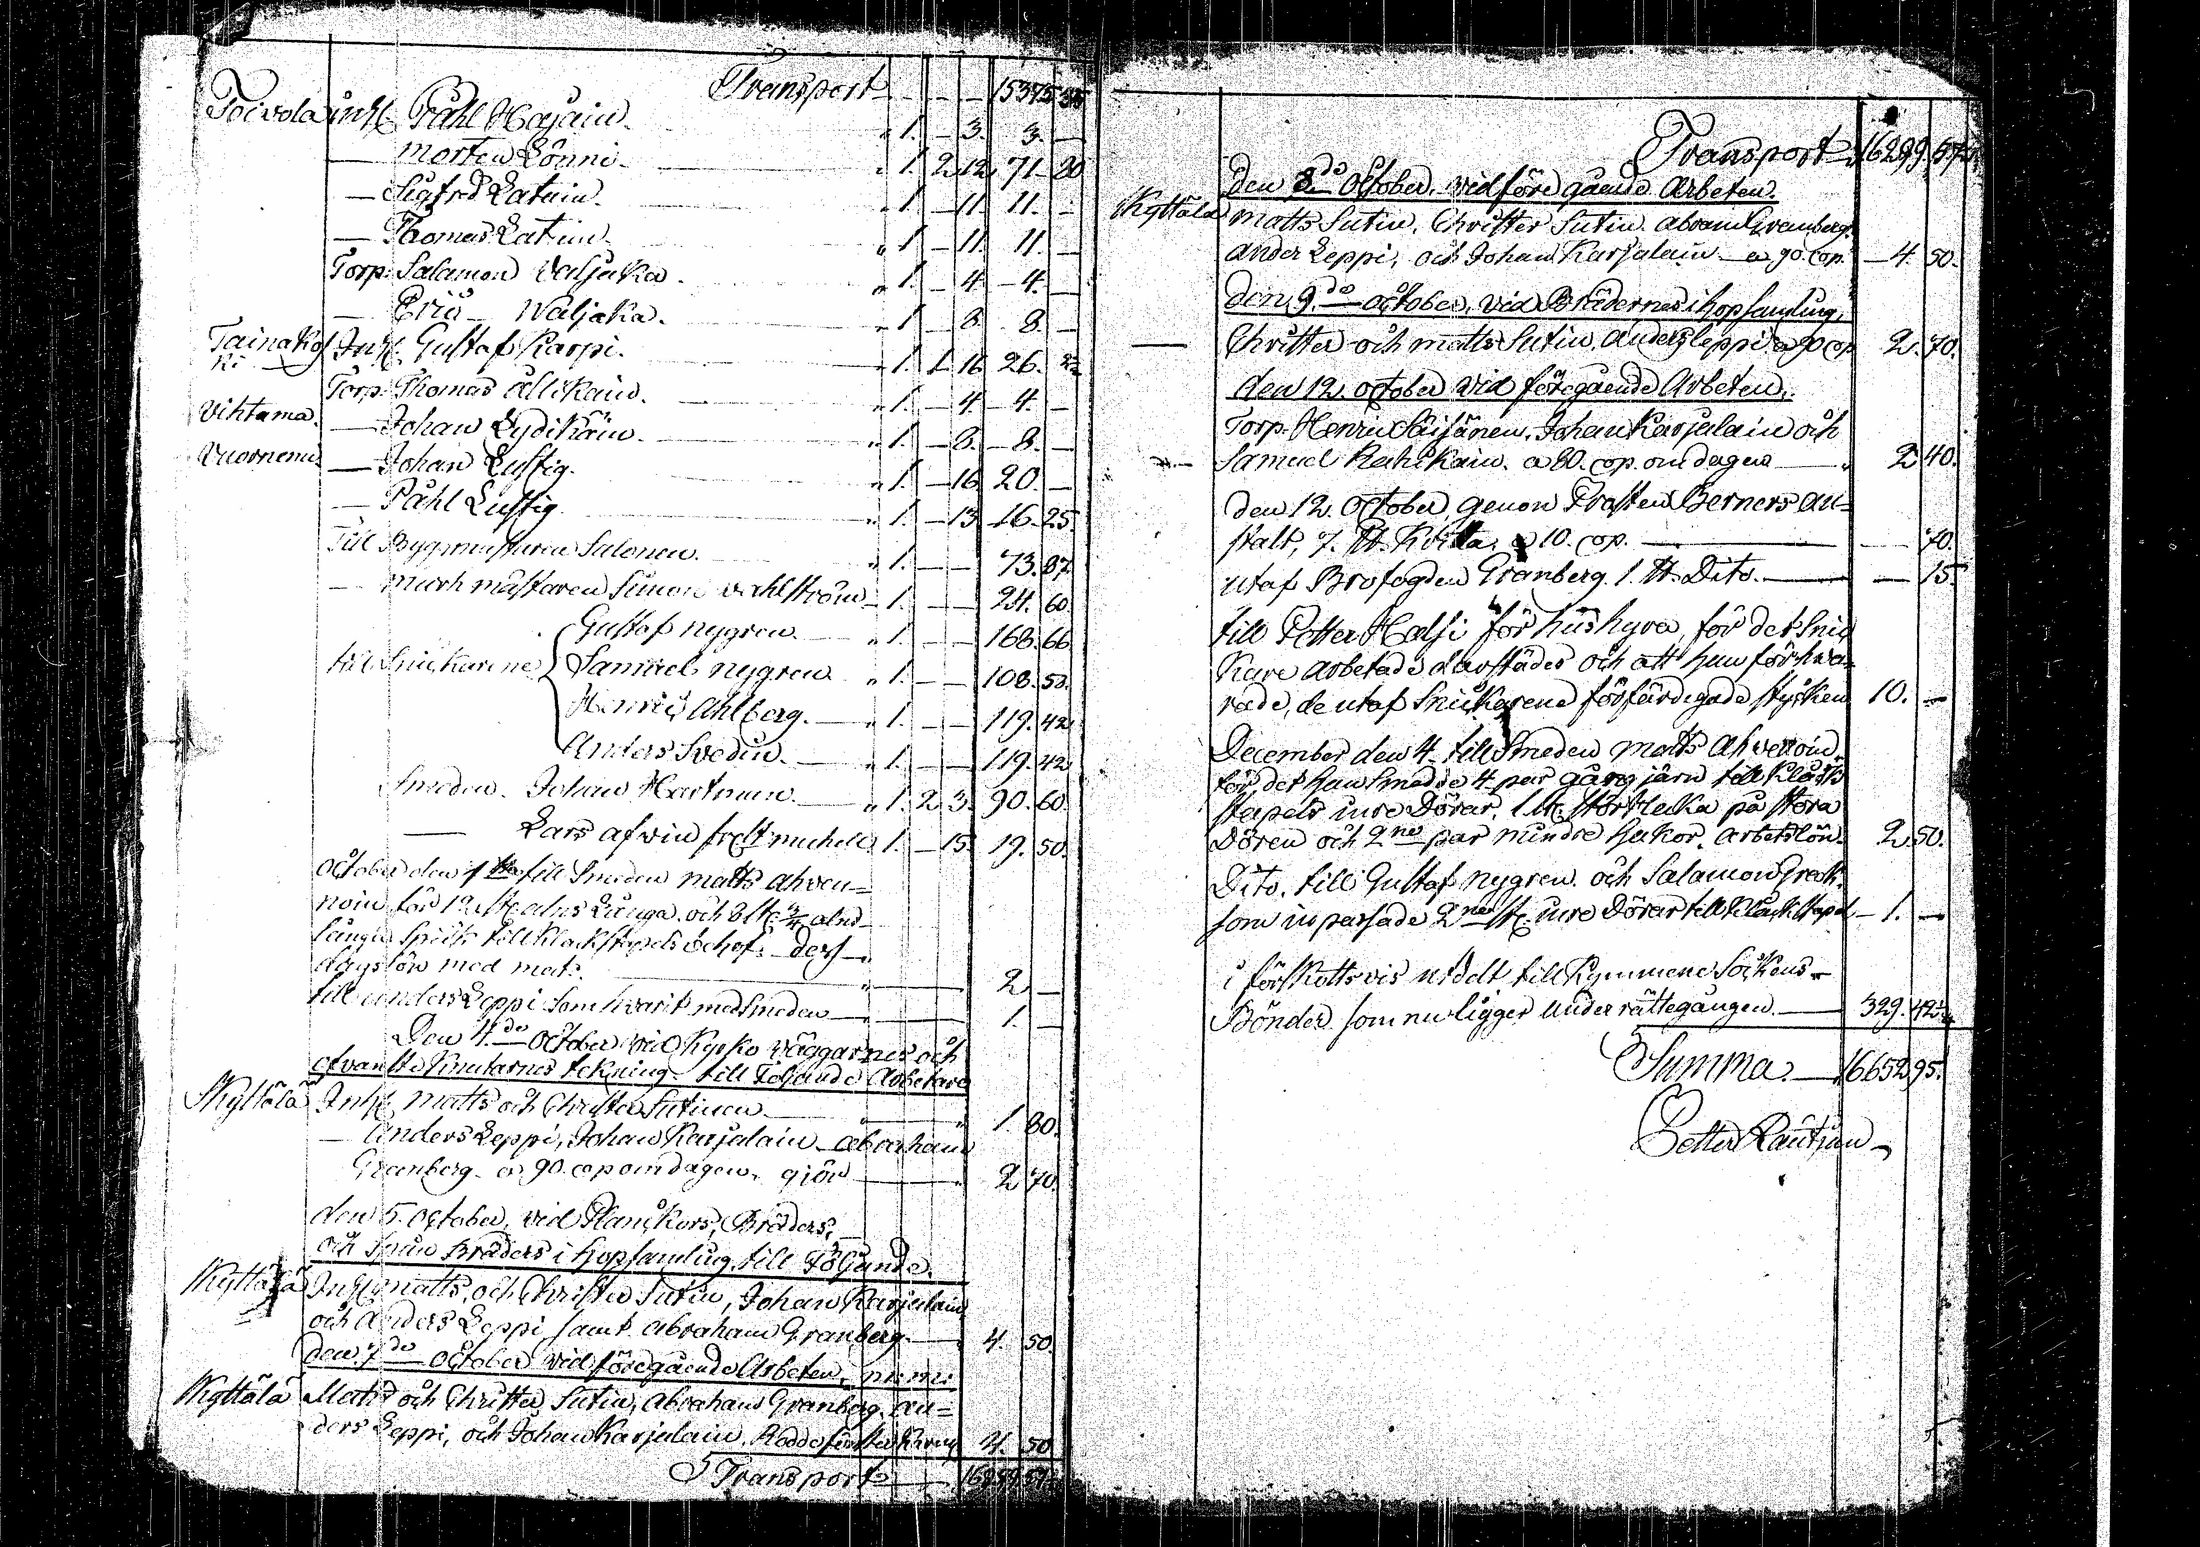 Transport 15375
Toivola inh Påhl Hajain. 1. — 3. 3. —
— Morten Lönni. 1. 2 12 71 20
— Sigfrd Latuin. 1. — 11. 11. —
— Thomas Latuin. 1 — 11 11. —
Torp. Salamon Valjaka. 1. — 4. 4. —
— Eric Waljaka. 1 — 8. 8. —
Tainakos Inh. Gustaf Karpi. 1. 1 16 26.
ki
Torp. Thomas Ollikain. 1. — 4. 4. —
Vihtama. — Johan Lydikäin. 1. — 8. 8. —
Vuorneme — Johan Lustig. 1. — 16 20. —
— Påhl Lustig. 1. — 13 16. 25.
Till Bygmästaren Salonen. 1. — — 73. 87.
— murmästaren Simon Wahlström 1. — — 24. 60.
Gustaf Nygren. 1. — — 168. 66
till Snickarene Samuel Nygren. 1. — — 108. 58.
Henric Ahlberg. 1. — — 119. 42
Anders Svedin. 1. — — 119. 42
Smeden. Johan Hartman. 1 2 3. 90. 60.
— Lars 1. — 15. 19. 50.
October den till Smeden Matts Ahven=
noin för 12 alns Långa och alns
långa Spik till Klockstapels
dagslön med mat. 2 —
till Anders Leppi som varit med Smeden 1. —
Den 4.de October vid Kyrko väggarnes och
Knutarnes tekning till Följande Arbetare
Kyttälä Inh. Matts och Christer Sutinen 1. 80.
— Anders Leppi, Johan Karjalain Abraham
Granberg a 90. cop om dagen, giör 2. 70.
den 5. October, vid Planckors, Bräders,
och Bräders ihopsamling, till Följande.
Kyttälä Inh. Matts, och Christer Sutin, Johan Karjalain
och Anders Leppi, samt Abraham Granberg. 4. 50.
den 7.de October vid föregående Arbeten,
Kyttälä Matts och Christer Sutin, Abraham Granberg, An=
ders Leppi, och Johan Karjalain. 4. 50
Transport
Transport 16299.
Den 8.de October. vid föregående Arbeten.
Kyttälä Matts Sutin. Christer Sutin. Abram Granberg.
Ander Leppi, och Johan Karjalain a 90 cop. — 4. 50.
Den 9.de October, vid Brädernes ihopsamling,
— Christer och Matts Sutin. Anders Leppi, a 90 cop 2. 70.
den 12. October vid föregående Arbeten,
Torp. Henric Säisänen, Johan Karjalain och
Samuel a 80. cop. om dagen 2 40.
den 12. October, genom Prosten Berners an=
stalt, 7. a 10. cop. — 70.
utaf Brofogden Granberg. 1. Dito. — 15.
till Petter Halsi för hushyra, för det Snic
kare Arbetade därstädes och att han förkwa=
rade, de utaf Snickarena förfärdigade stycken 10. —
December den 4. till Smeden Matts Ahvenoin
för det han Smedde 4. par gång järn till Klock
stapels inre Dörar, på stora
Dören och 2ne par mindre hakor. Arbetslön 2. 50.
Dito. till Gustaf Nygren och Salamon Greck.
som inpassade 2ne st. inre Dörar till Klockstapel — 1. —
i förskotts vis utdelt till Kymmene Sockens
Bönder som nu ligger under rättegången. 329. 42
Summa. 16652. 95.
Petter Rautiain